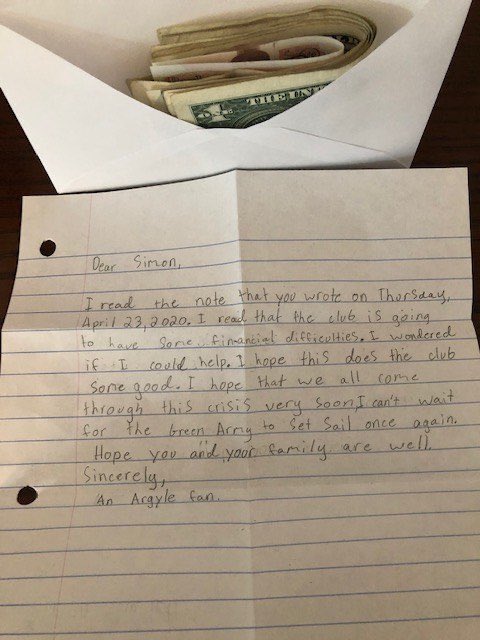 Dear Simon,
I read the note that you wrote on Thursday,
April 23, 2020. I read that the club is going
to have some financial difficulties. I wondered
if I could help. I hope this does the club
some good. I hope that we all come
through this crisis very soon. I can't wait
for the Green Army to Set Sail once again.
Hope you and your family are well.
Sincerely,
An Argyle fan.